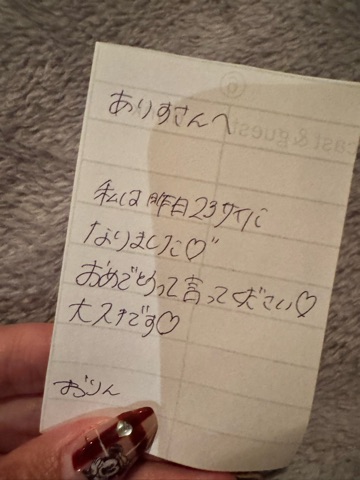 ありすさんへ
私は昨日23サイに
なりました♡"
おめでとうって言ってください♡
大スキです♡
おりん